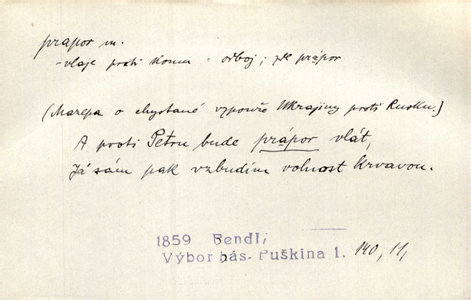 prapor m.
- vlaje proti komu - odboj; zde prápor
(Mazepa o chystané vzpouře Ukrajiny proti Rusku.)
A proti Petru bude prápor vlát,
Já sám pak vzbudím volnost krvavou.
1859 Bendl,
Výbor bás. Puškina 1. 140, 11,